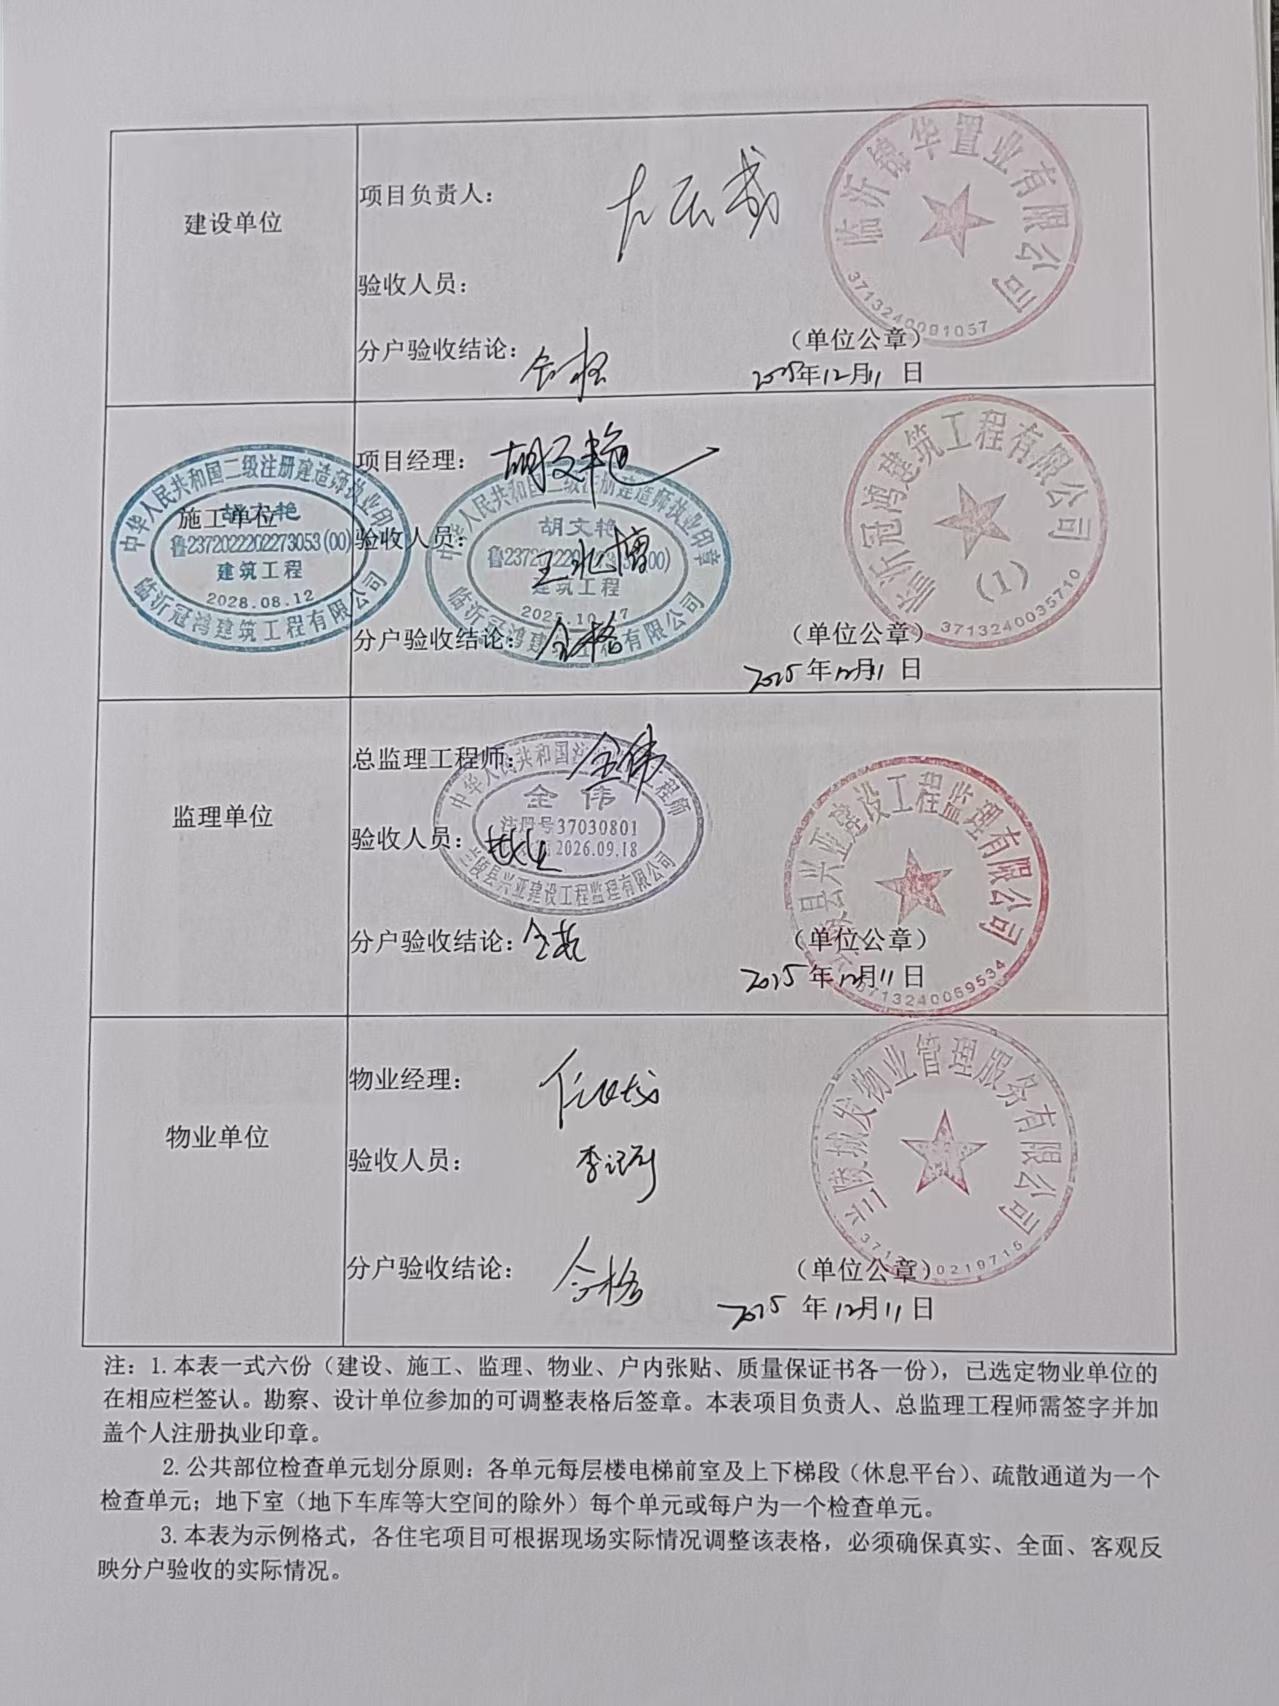 建设单位
项目负责人：
验收人员：
分户验收结论：
（单位公章）
2025年12月11日
临沂锦华置业有限公司
3713240091057
施工单位
项目经理：胡文艳
验收人员：王兆博
分户验收结论：合格
（单位公章）
2025年12月11日
中华人民共和国二级注册建造师执业印章
胡文艳
鲁2372022202273053(00)
建筑工程
2028.08.12
临沂冠鸿建筑工程有限公司
中华人民共和国二级注册建造师执业印章
胡文艳
建筑工程
2025.10.17
临沂冠鸿建筑工程有限公司
临沂冠鸿建筑工程有限公司
（1）
3713240035710
监理单位
总监理工程师：全伟
验收人员：
分户验收结论：
（单位公章）
2025年12月11日
全伟
注册号37030801
2026.09.18
兰陵县兴亚建设工程监理有限公司
兰陵县兴亚建设工程监理有限公司
3713240069534
物业单位
物业经理：
验收人员：
分户验收结论：合格
（单位公章）
2025年12月11日
兰陵城发物业管理服务有限公司
注：1.本表一式六份（建设、施工、监理、物业、户内张贴、质量保证书各一份），已选定物业单位的
在相应栏签认。勘察、设计单位参加的可调整表格后签章。本表项目负责人、总监理工程师需签字并加
盖个人注册执业印章。
2.公共部位检查单元划分原则：各单元每层楼电梯前室及上下梯段（休息平台）、疏散通道为一个
检查单元；地下室（地下车库等大空间的除外）每个单元或每户为一个检查单元。
3.本表为示例格式，各住宅项目可根据现场实际情况调整该表格，必须确保真实、全面、客观反
映分户验收的实际情况。